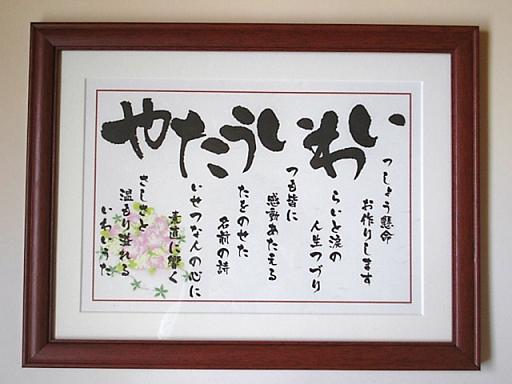 いわいうたや
っしょう懸命
お作りします
らいと涙の
人生つづり
つも皆に
感動あたえる
たをのせた
名前の詩
いせつな人の心に
素直に響く
さしさと
温もり溢れる
いわいうた